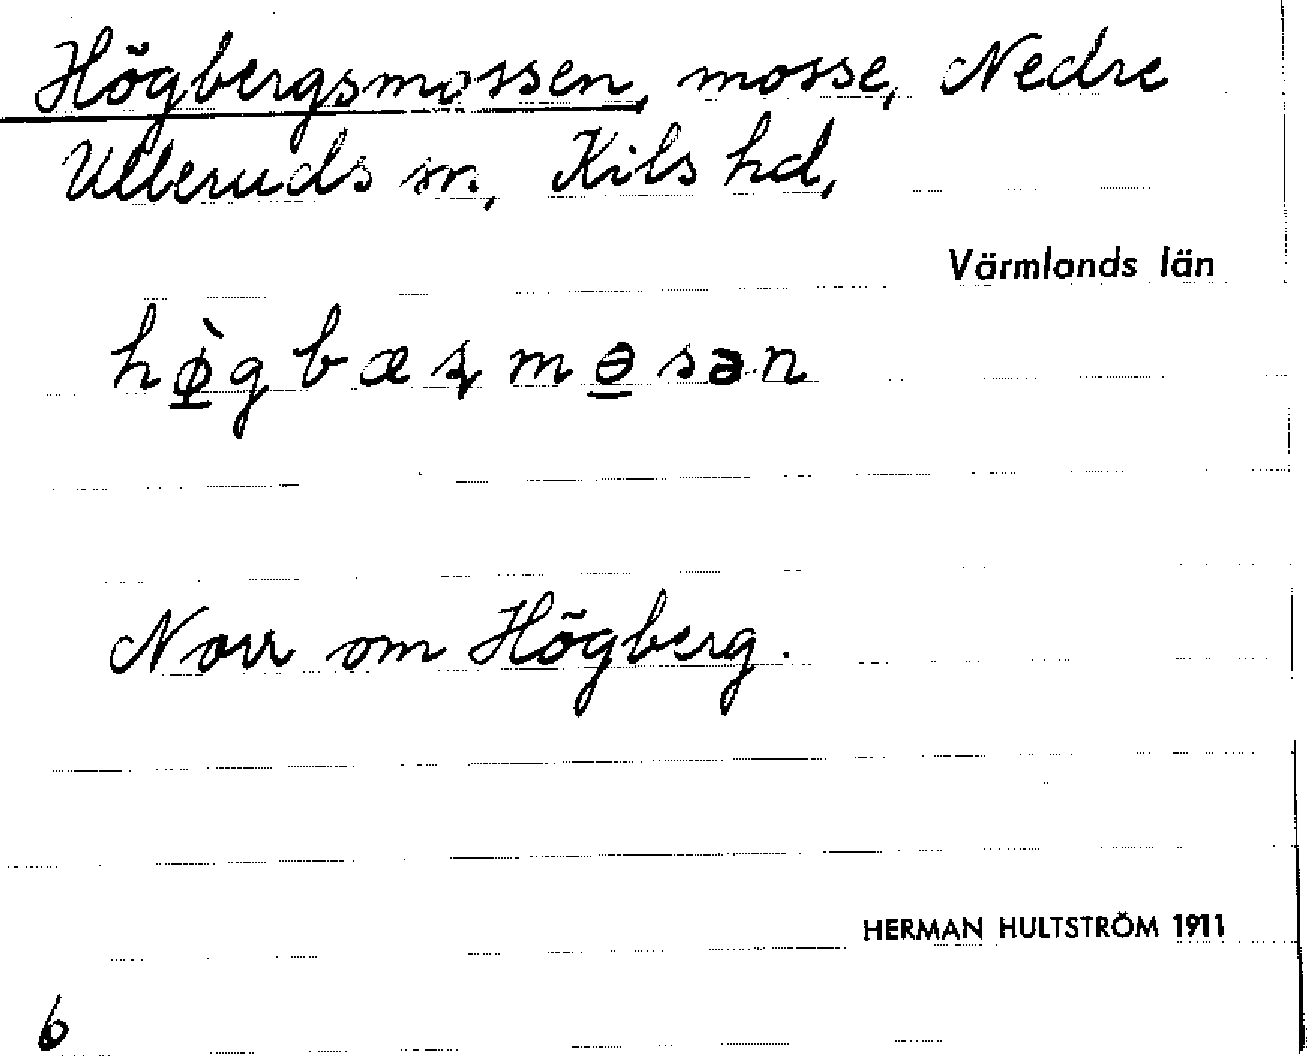 Högbergsmossen, mosse, Nedre
Ulleruds sn, Kils hd,
Värmlands län
hø̀gbæʂmɵsən
Norr om Högberg.
HERMAN HULTSTRÖM 1911
6